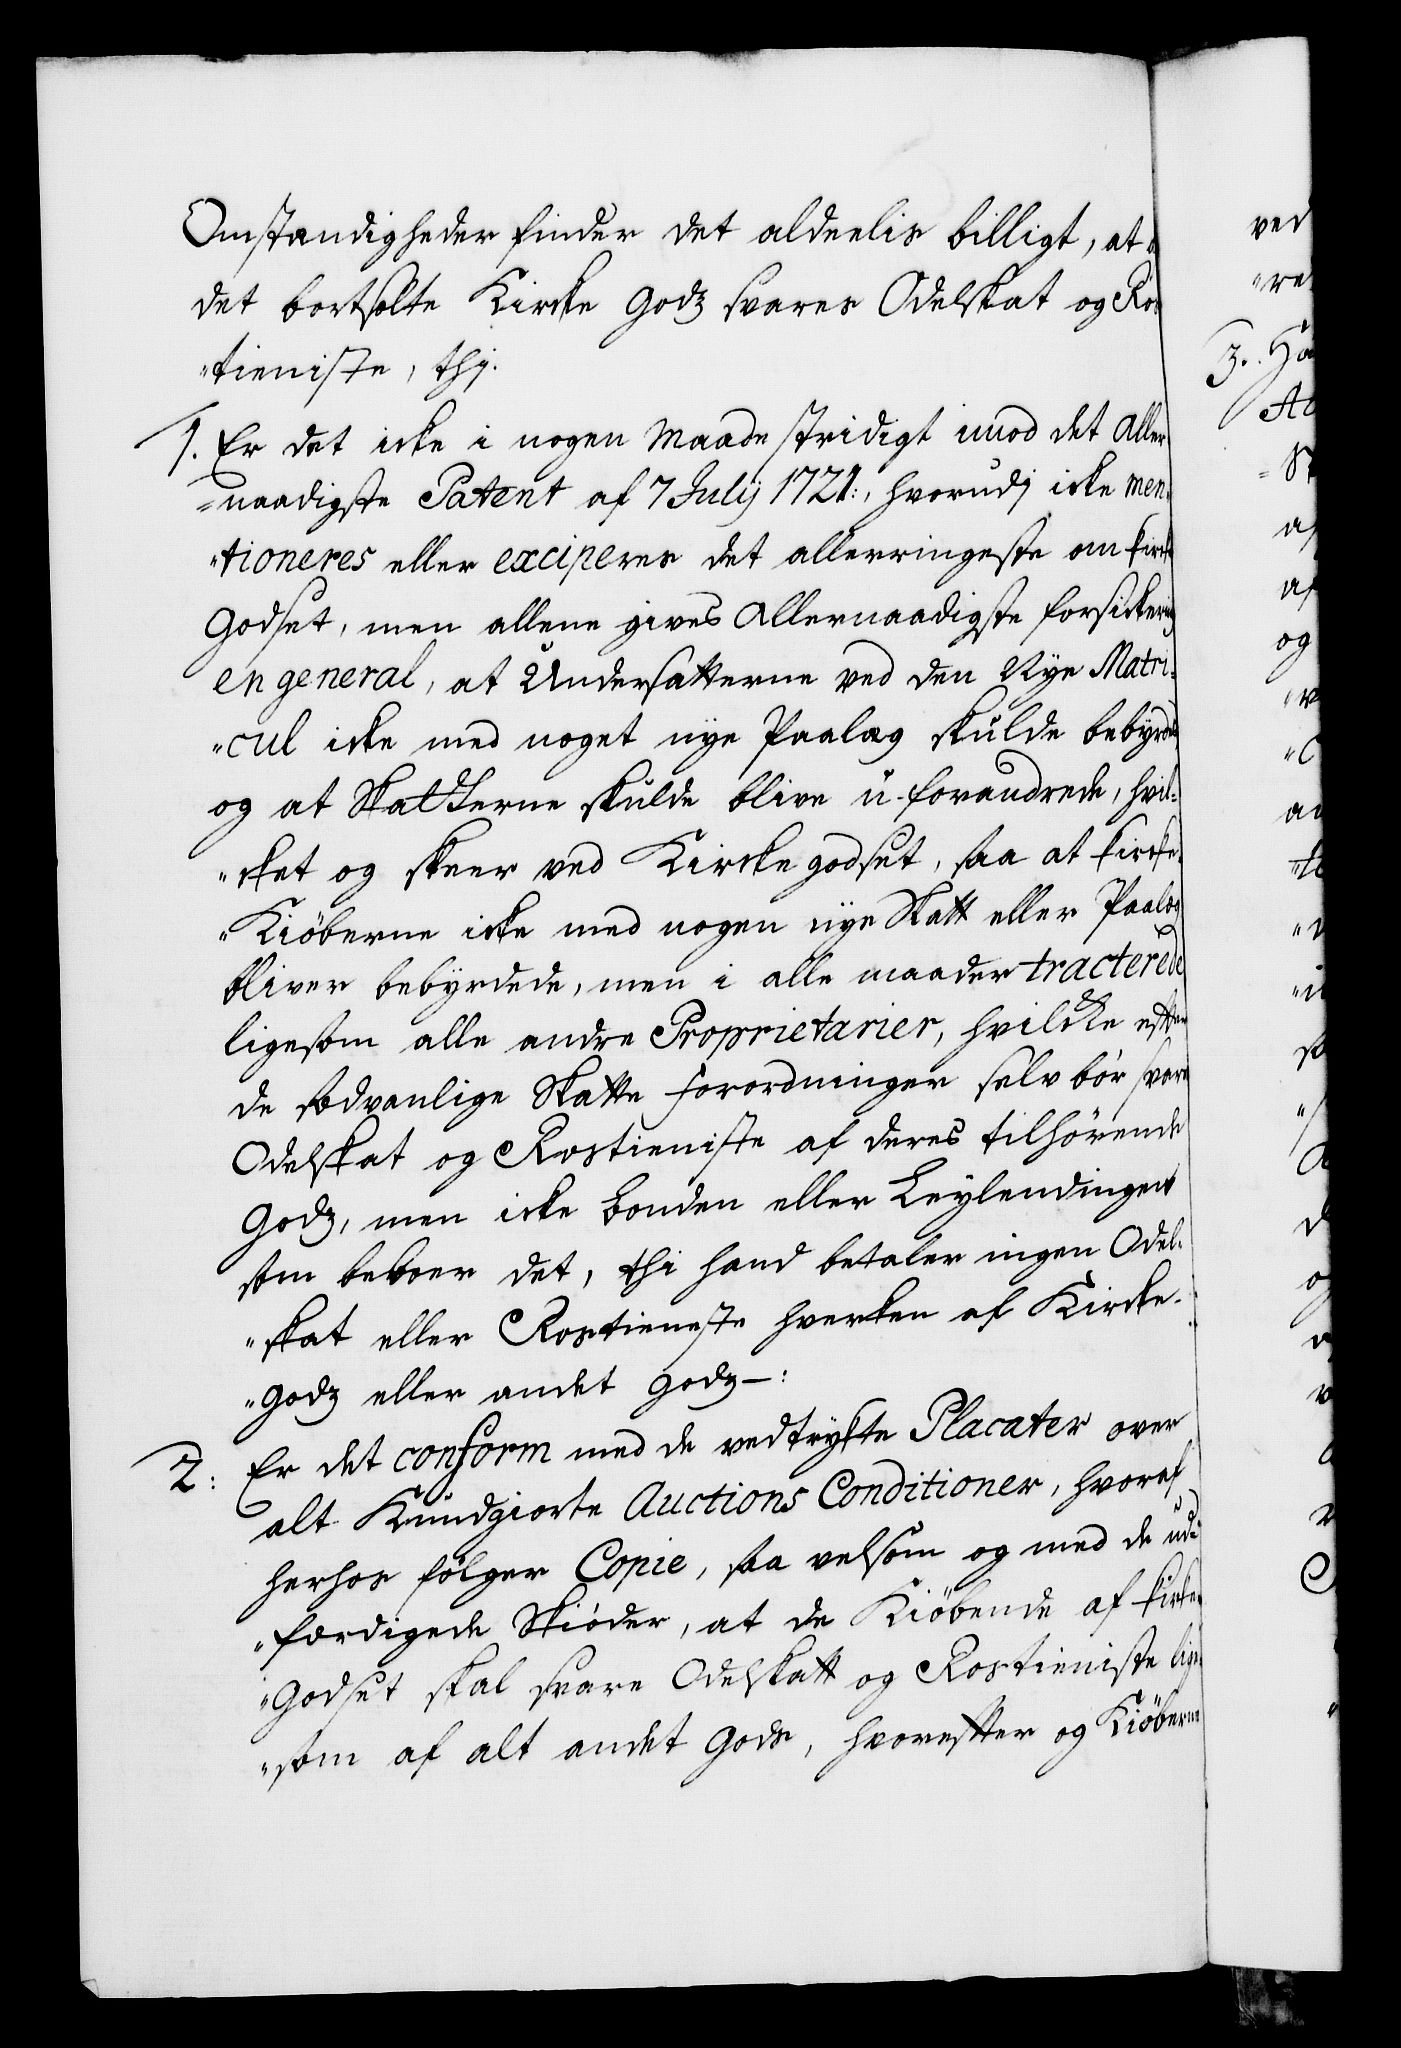 Omstændigheder finder det aldeelis billigt, at
det bortsolte Kircke Godz svares Odelskat og Ros
"tieniste, thj.
1. Er det icke i nogen Maade stridigt imod det Aller
=naadigste Patent af 7 Julij 1721:, hvorudj icke men-
"tioneres eller exciperes det allerringeste om kircke
Godset, men allene gives Allernaadigste forsickering
en general, at Undersatterne ved den Nye Matri-
"cul icke med noget nye Paalæg skulde bebyrdes
og at Skatterne skulde blive u-forandrede, hvil-
"cket og skeer ved Kircke godset, saa at kircke-
"Kiöberne icke med nogen nye Skatt eller Paalæg
bliver bebyrdede, men i alle maader tracterede
ligesom alle andre Proprietarier, hvilcke efter
de sædvanlige Skatte forordninger selv bör svare
Odelskat og Rostieniste af deres tilhörende
Godz, men icke bonden eller Leylendingen
som beboer det, thi hand betaler ingen Odel-
"skat eller Rostieneste hverken af Kircke-
"Godz eller andet Godz-:
2: Er det conform med de vedtrykte Placater over
alt Kundgiorte Auctions Conditioner, hvoraf
herhos følger Copie, saa velsom og med de ud-
"færdigede Skiöder, at de Kiöbende af kircke
"Godset skal svare Odelskatt og Rostieniste lige-
"som af alt andet Gods, hvorefter og Kiöberne
ved
3.
og